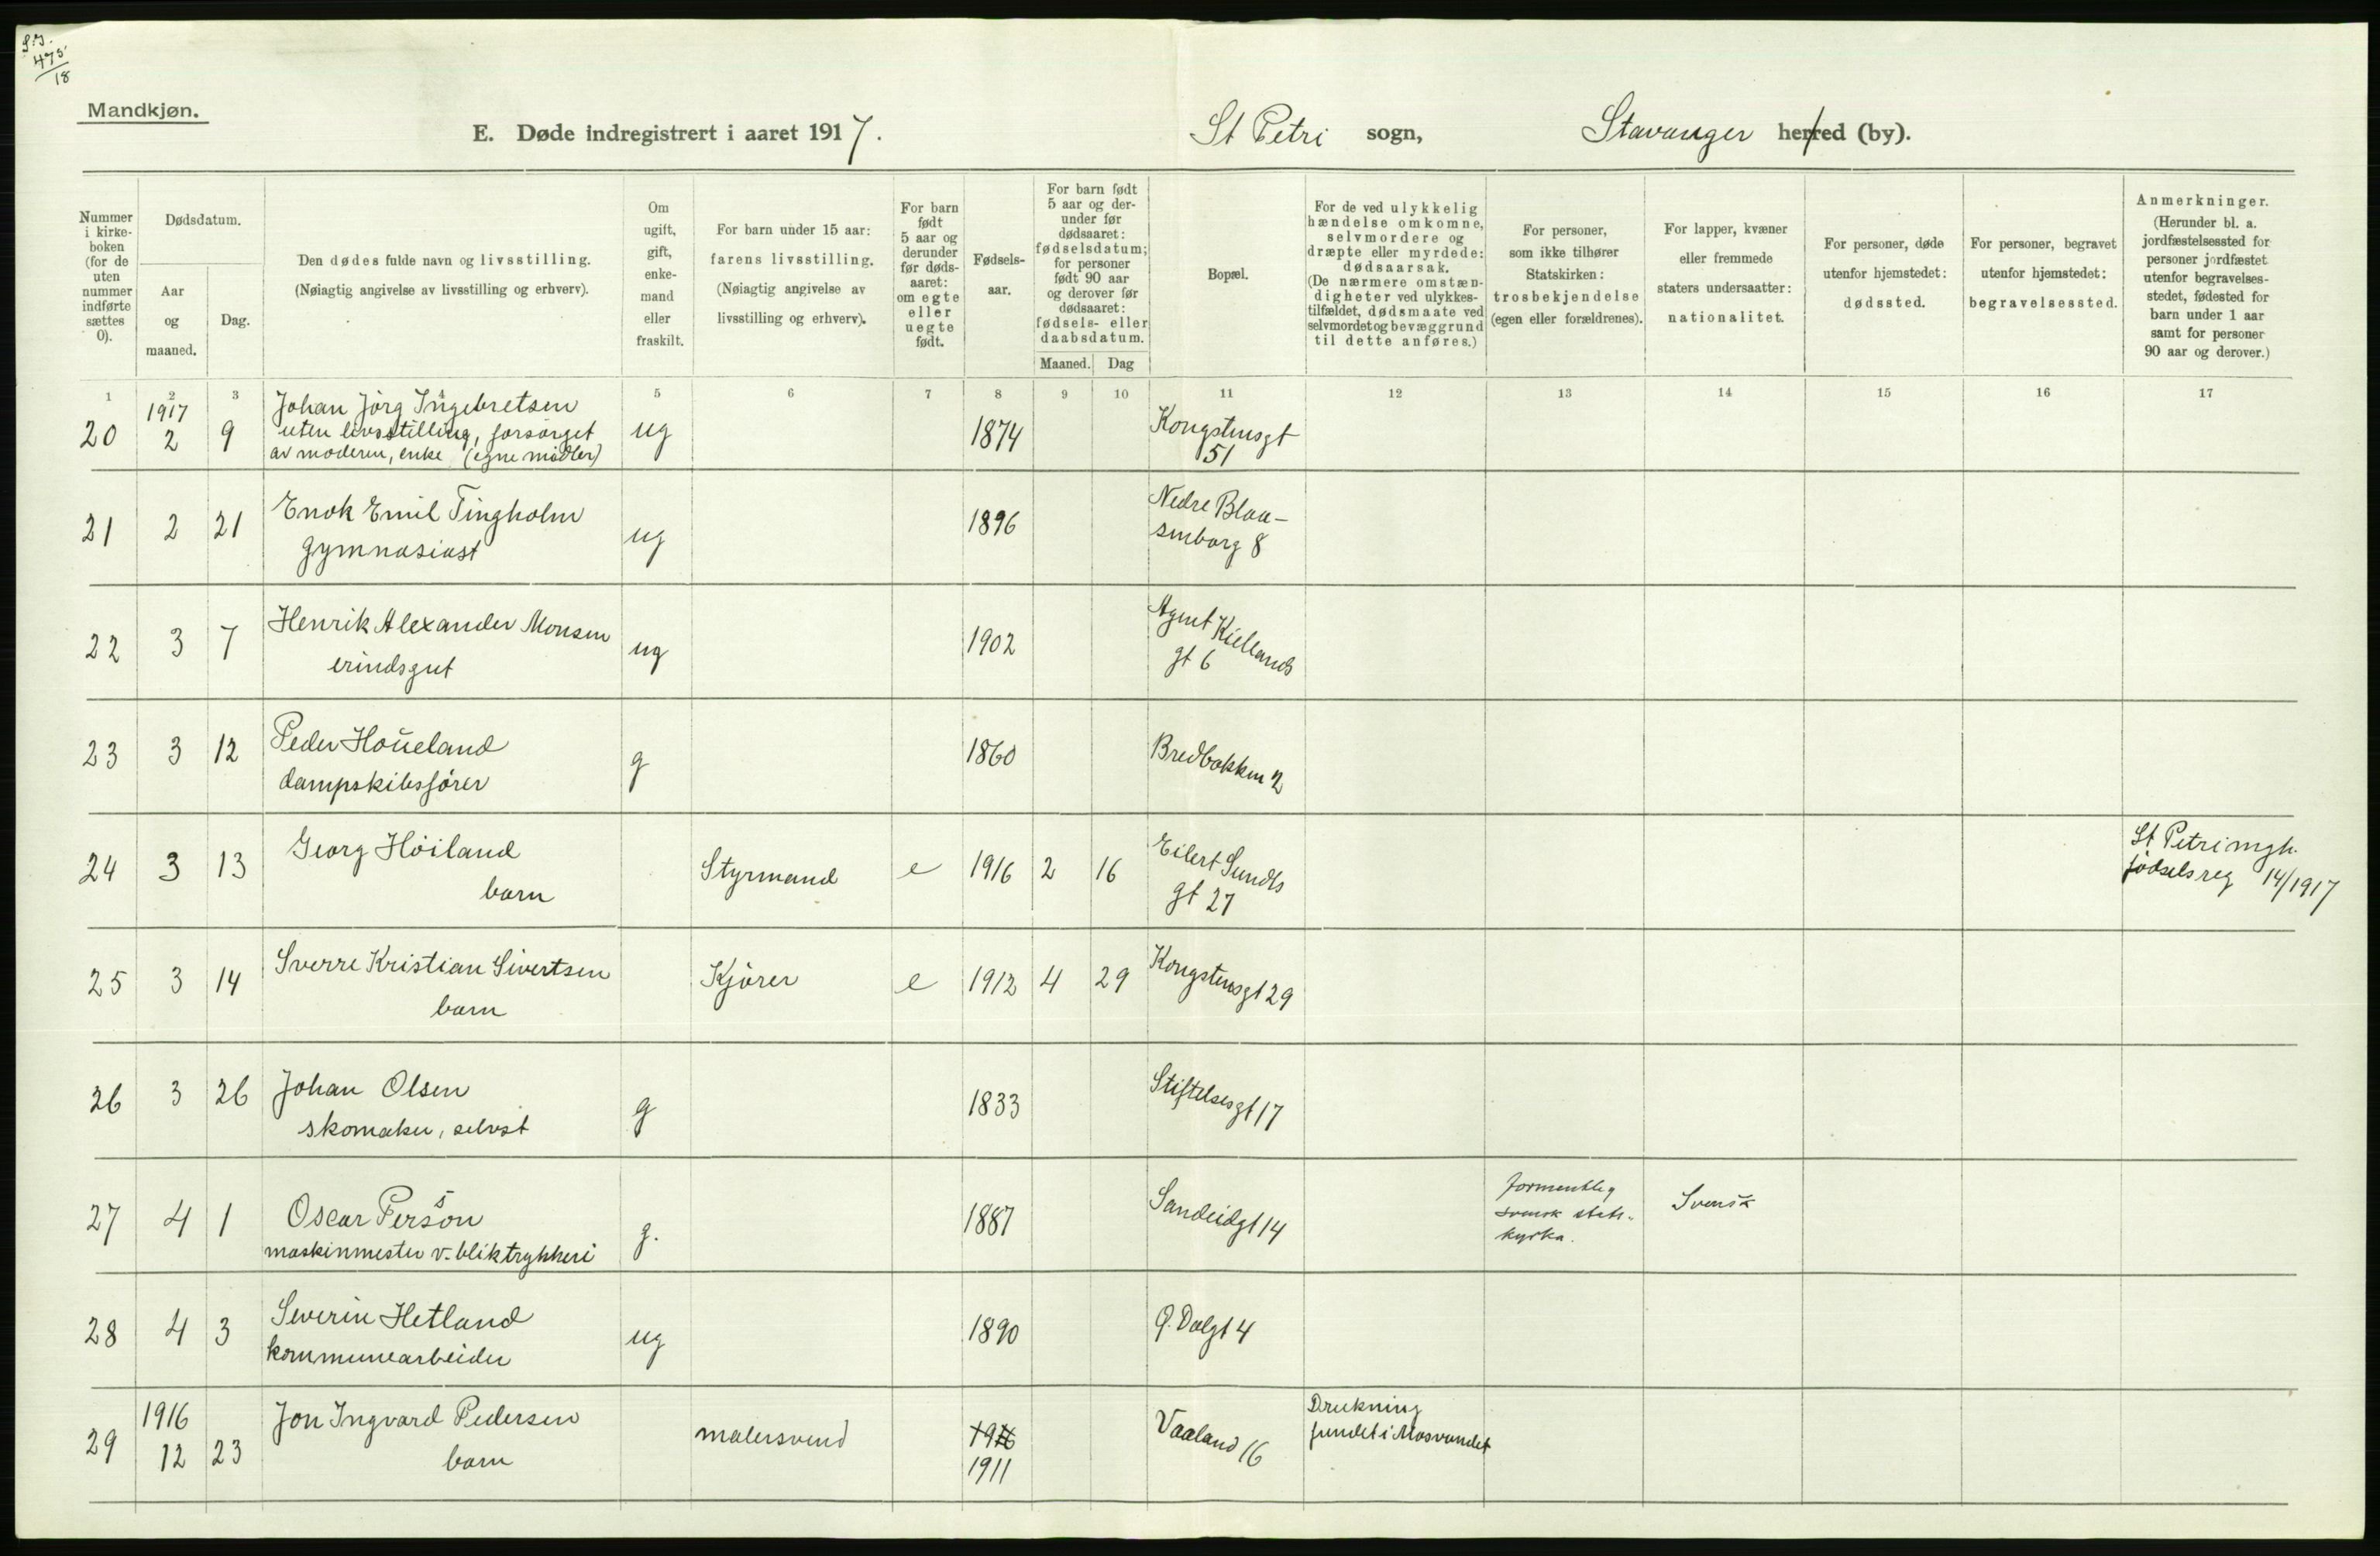 S.J.
475
18
Mandkjøn.
E. Døde indregistrert i aaret 1917.
St Petri sogn,
Stavanger herred (by).
Nummer
i kirke-
boken
(for de
uten
nummer
indførte
sættes
0).
Dødsdatum.
Aar
og
maaned.
Dag.
Den dødes fulde navn og livsstilling.
(Nøiagtig angivelse av livsstilling og erhverv).
Om
ugift,
gift,
enke-
mand
eller
fraskilt.
For barn under 15 aar:
farens livsstilling.
(Nøiagtig angivelse av
livsstilling og erhverv).
For barn
født
5 aar og
derunder
før døds-
aaret:
om egte
eller
uegte
født.
Fødsels-
aar.
For barn født
5 aar og der-
under før
dødsaaret:
fødselsdatum;
for personer
født 90 aar
og derover før
dødsaaret:
fødsels- eller
daabsdatum.
Maaned.
Dag
Bopæl.
For de ved ulykkelig
hændelse omkomne,
selvmordere og
dræpte eller myrdede:
dødsaarsak.
(De nærmere omstæn-
digheter ved ulykkes-
tilfældet, dødsmaate ved
selvmordet og bevæggrund
til dette anføres.)
For personer,
som ikke tilhører
Statskirken:
trosbekjendelse
(egen eller forældrenes).
For lapper, kvæner
eller fremmede
staters undersaatter:
nationalitet.
For personer, døde
utenfor hjemstedet:
dødssted.
For personer, begravet
utenfor hjemstedet:
begravelsessted.
Anmerkninger.
(Herunder bl. a.
jordfæstelsessted for
personer jordfæstet
utenfor begravelses-
stedet, fødested for
barn under 1 aar
samt for personer
90 aar og derover.)
1 2 3 5 6 7 8 9 10 11 12 13 14 15 16 17
20 1917 2 9
Johan Jörg Ingebretsen
uten livsstilling, forsørget
av moderen, enke (egne midler)
ug 1874
Kongstensgt
51
21 2 21
Enok Emil Tingholm
gymnasiast
ug 1896
Nedre Blaa-
senborg 8
22 3 7
Henrik Alexander Monsen
erindsgut
ug 1902
Agent Kiellands
gt 6
23 3 12
Peder Houeland
dampskibsfører
g 1860
Bredbakken 2
24 3 13
Georg Höiland
barn
Styrmand e 1916 2 16
Eilert Sundts
gt 27
St Petri mgh.
fødselsreg 14/1917
25 3 14
Sverre Kristian Sivertsen
barn
Kjører e 1912 4 29
Kongstensgt 29
26 3 26
Johan Olsen
skomaker, selvst
g 1833
Stiftelsesgt 17
27 4 1
Oscar Persson
maskinmester v. bliktrykkeri
g. 1887
Sandeidgt 14
formentlig
svensk stats-
kyrka.
Svensk
28 4 3
Severin Hetland
kommunearbeider
ug 1890
Q. Dalgt 4
29 1916 12 23
Jon Ingvard Pedersen
barn
malersvend
1916
1911
Vaaland 16
Drukning
fundet i Mosvandet